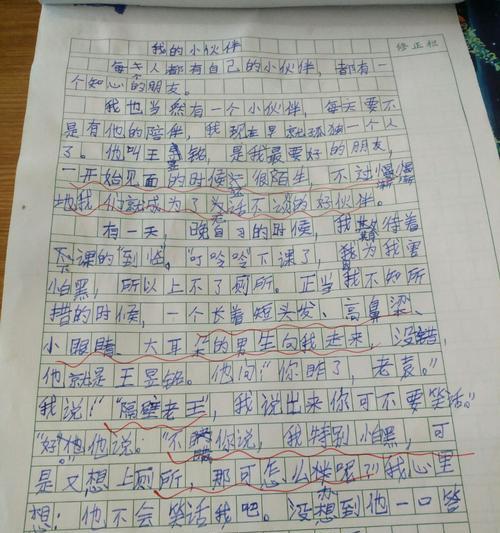 我的小伙伴
修正栏
每个人都有自己的小伙伴，都有一
个知心的朋友。
我也当然有一个小伙伴，每天要不
是有他的陪伴，我现在早就孤独一个人
了。他叫王昱铭，是我最要好的朋友，
一开始见面的时候很陌生，不过慢慢
地我们就成为了无话不谈的好伙伴。
有一天，晚自习的时候，我期待着
下课的"到临。"叮呤呤"下课了，我为我害
怕黑，所以上不了厕所。正当我不知所
措的时候，一个长着短头发、高鼻梁、
小眼睛、大耳朵的男生向我走来，没错，
他就是王昱铭。他问："你咋了，老袁。"
我说："隔壁老王"，我说出来你可不要笑话。"
"好"他说："不瞒你说，我特别怕黑，可
是又想上厕所，那可怎么样呢？"我心里
想：他不会笑话我吧。没想到他一口答